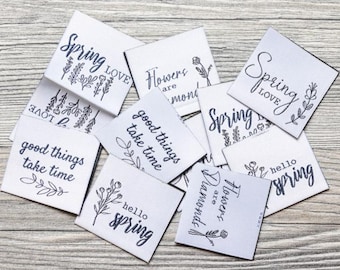 Spring
LOVE
Flowers
are
amond
Spring
LOVE
LOVE
good things
take time
Spring
LOVE
good things
take time
hello
spring
Flowers
are
Diamond
hello
spring